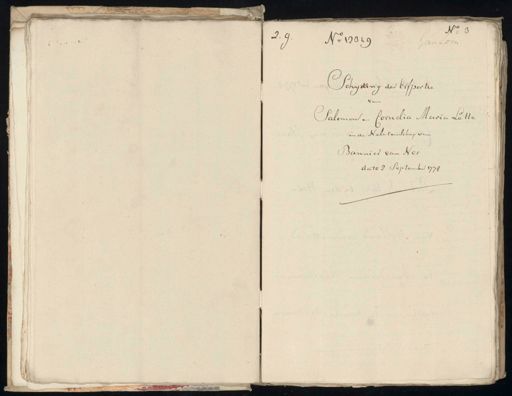 2. g.
N.º 17049
N.º 3
Scheyding der Erfportie
van
Salomon en Cornelia Maria Lotte
in de Nalatenschap van
Bannier van Nes
dato 2 September 1778